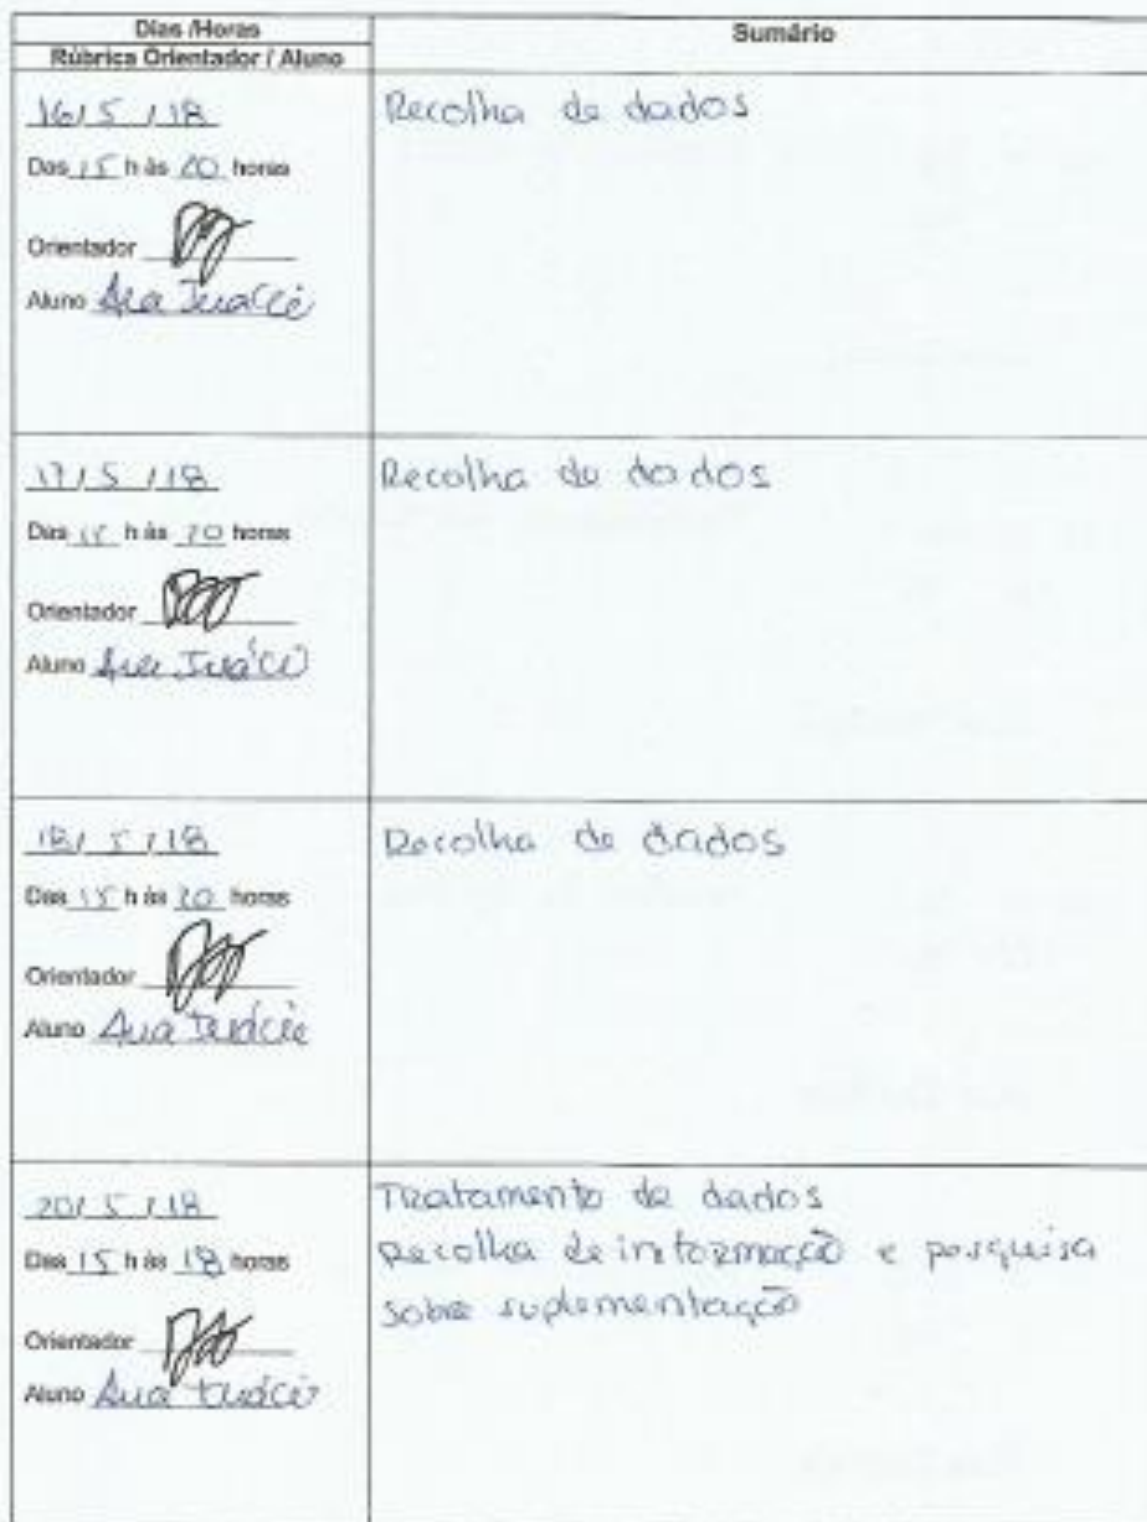 Dias /Horas
Rúbrica Orientador / Aluno
Sumário
16/ 5 / 18
Das 15 h às 20 horas
Orientador
Aluno Ana Inácio
Recolha de dados
17/ 5 / 18
Das 15 h às 20 horas
Orientador
Aluno Ana Inácio
Recolha de dados
18/ 5 / 18
Das 15 h às 20 horas
Orientador
Aluno Ana Inácio
Recolha de dados
20/ 5 / 18
Das 15 h às 18 horas
Orientador
Aluno Ana Inácio
Tratamento de dados
Recolha de informação e pesquisa
sobre suplementação